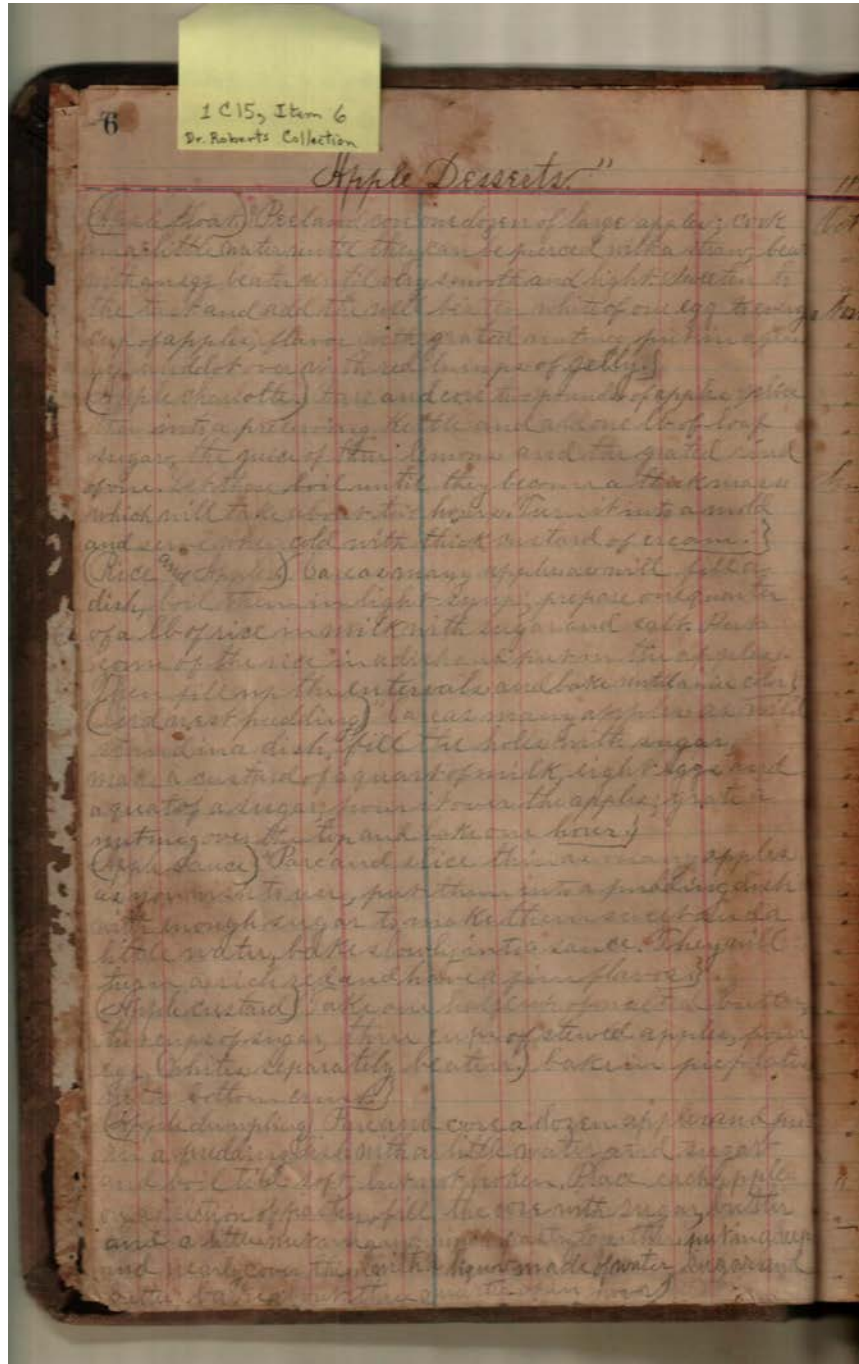 1 C15, Item 6
Dr. Roberts Collection
6
Apple Desserts"
Peel and core one dozen of large apples; cook
in a little water until they can be pierced with a straw; beat
with an egg beater until very smooth and light. Sweeten to
the taste and add the well beaten white of one egg to every
cup of apples; flavor with grated nutmeg, put in a glass
and dot over with red lumps of gelly.}
(Apple charlotte) Pare and core two pounds of apples
into a preserving kettle and add one lb of loaf
sugar, the juice of three lemons and the grated rind
of one. Let these boil until they become a thick mass
which will take about two hours. Turn it into a mold
and serve when cold with thick custard of cream.}
(Rice and Apples) as many apples as will fill a
dish, boil them in light syrup; prepare one quarter
of a lb of rice in milk with sugar and salt.
some of the rice in a dish and put in the apples
then fill up the intervals and bake until
(Bird nest pudding) as many apples as will
stand in a dish, fill the holes with sugar,
make a custard of a quart of milk, eight eggs and
of a sugar pour it over the apples; grate a
nutmeg over the top and bake one hour.}
(Apple Sauce) Pare and slice thin as many apples
as you wish to use, put them into a pudding dish
with enough sugar to make them sweet and a
little water, bake slowly into a sauce. They will
turn a rich red and have a fine flavor.}
(Apple custard) Take one half cup of melted butter,
cups of sugar, three cups of stewed apples, four
eggs (whites separately beaten) bake in pie plates
with bottom crust.}
(Apple dumpling Pare and core a dozen apples and put
in a pudding dish with a little water and sugar
and boil till soft but not broken. Place each apple
on a section of pastry, fill the core with sugar, butter
and a little
and nearly cover the with a liquor made of water, sugar and
butter bake